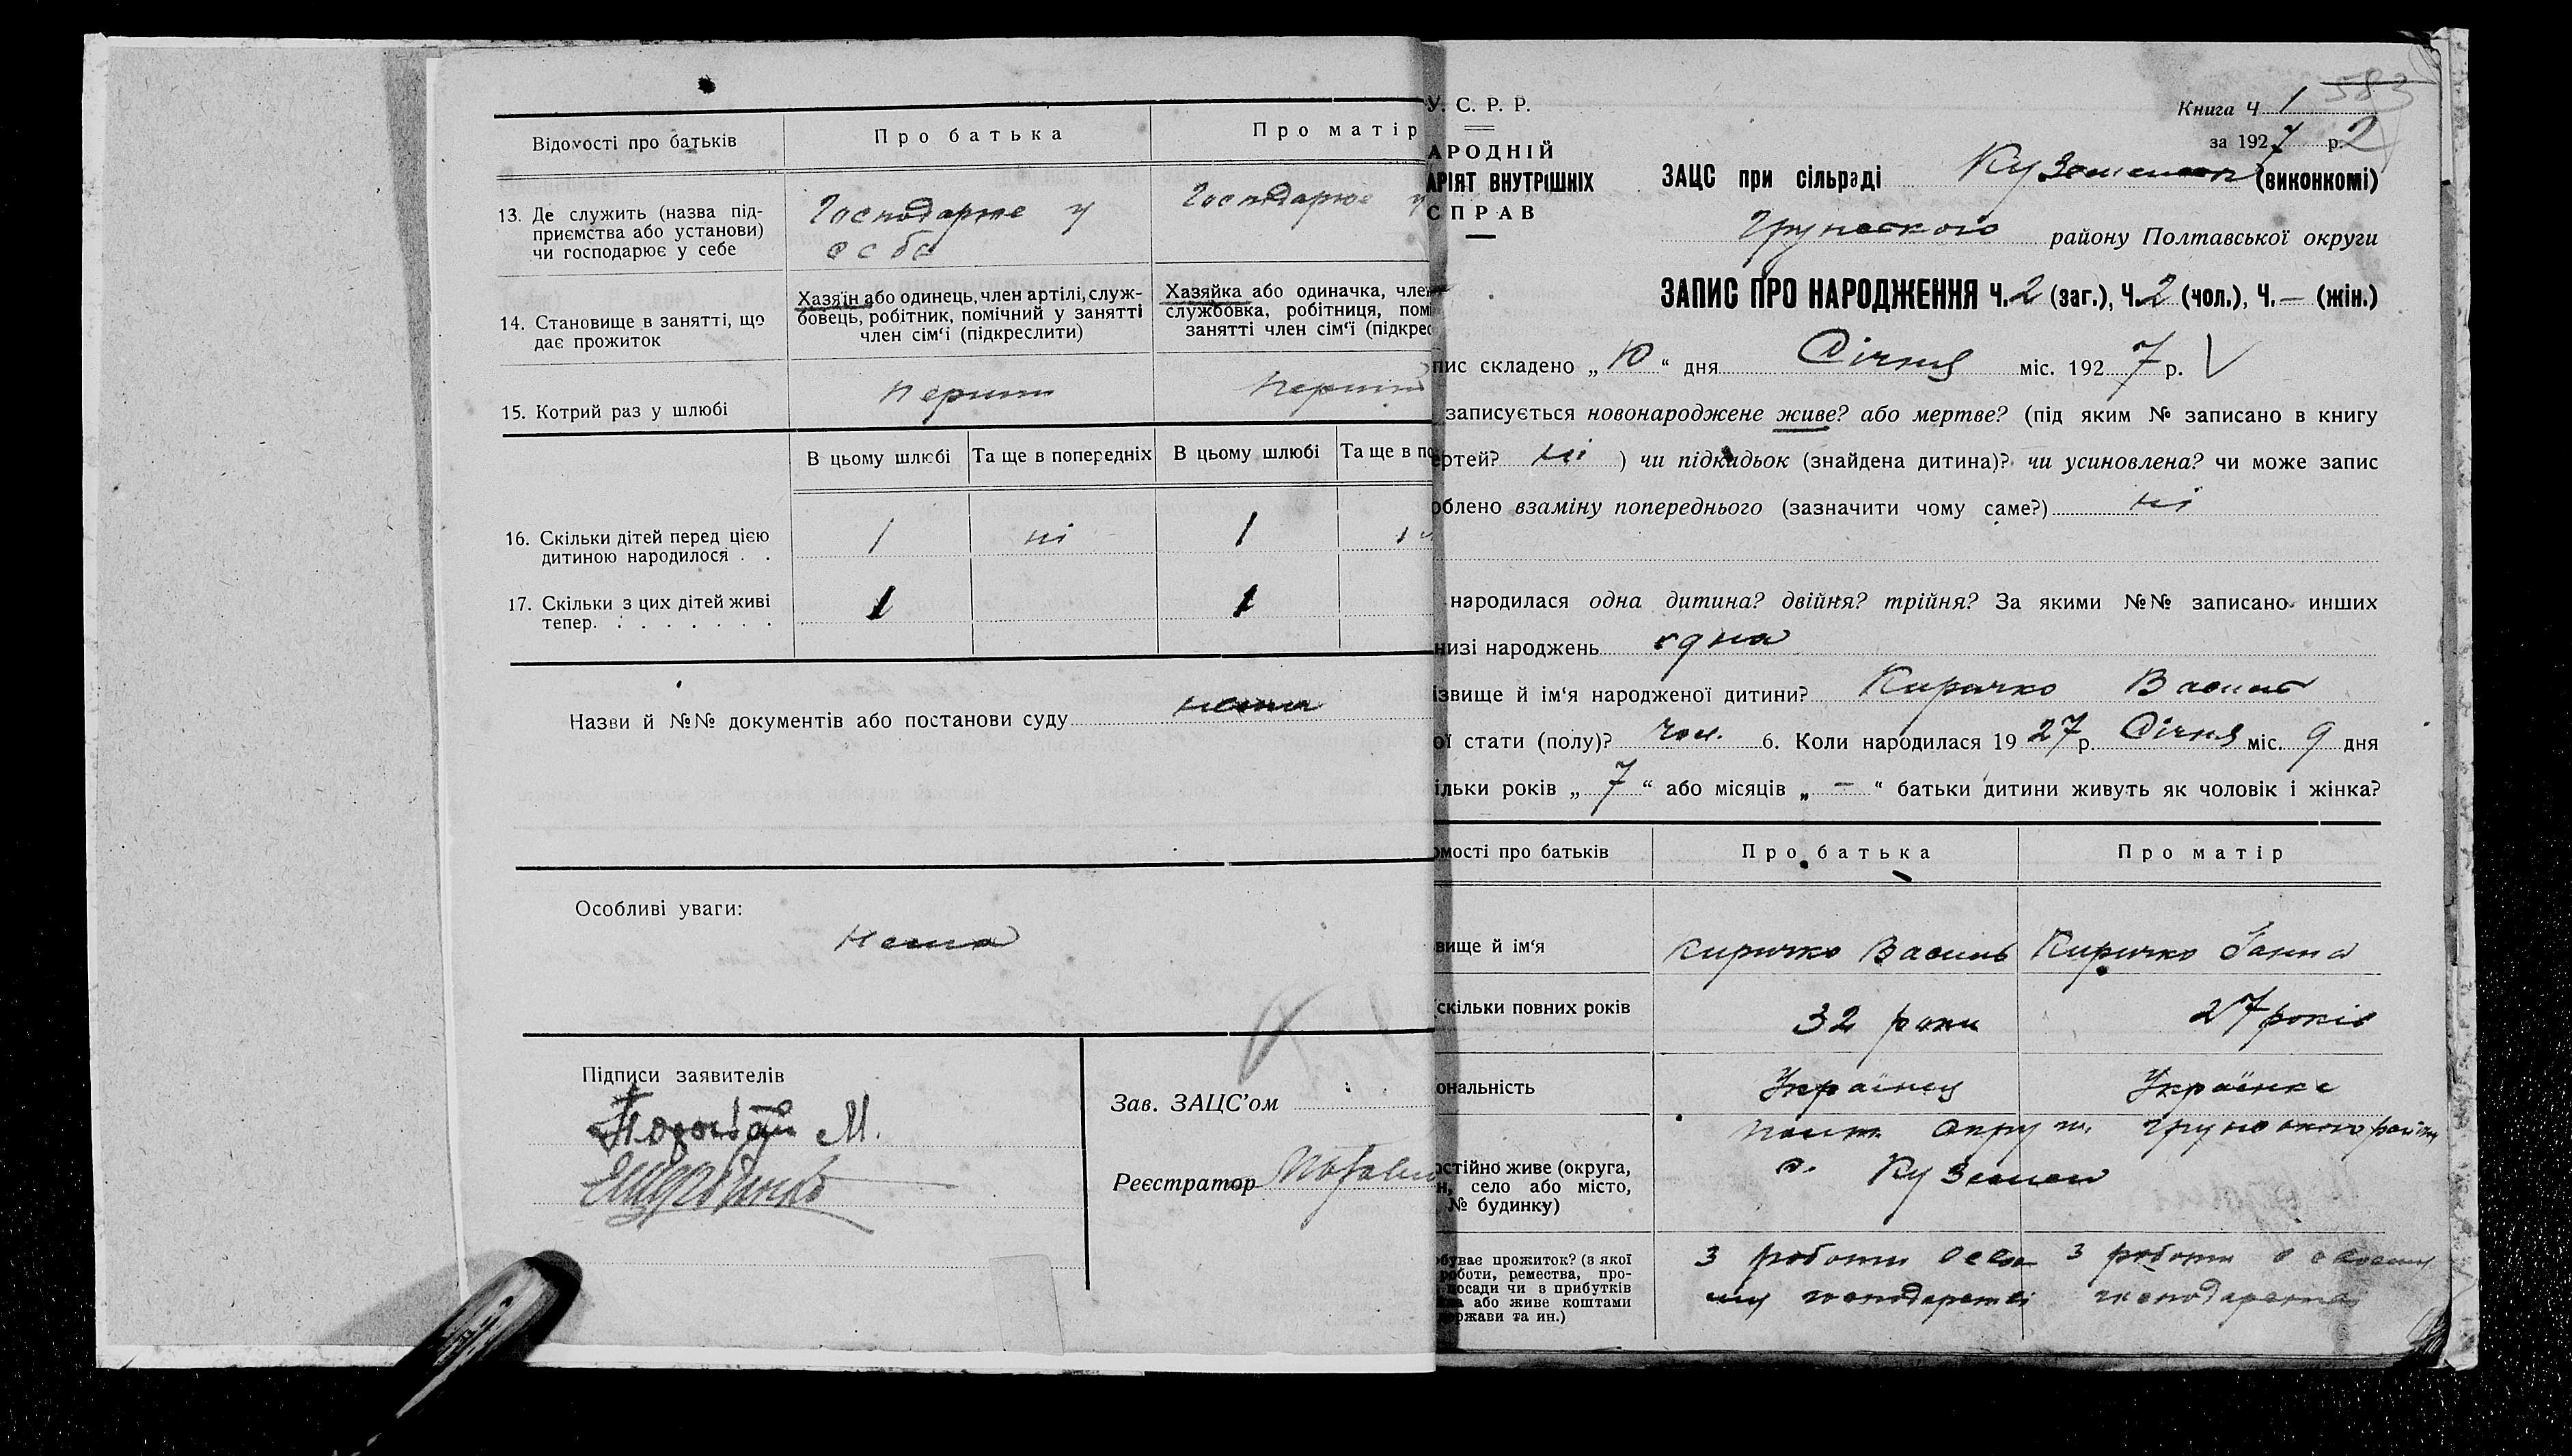 Відомості про батьків
Про батька
Про матір
13. Де служить (назва під-
приємства або установи)
чи господарює у себе
Господарює у
себе
Господарює у
14. Становище в занятті, що
дає прожиток
Хазяїн або одинець, член артілі, служ-
бовець, робітник, помічний у занятті
член сім‘ї (підкреслити)
Хазяйка або одиначка, член
службовка, робітниця, пом
занятті член сім‘ї (підкрес
15. Котрий раз у шлюбі
перший
перший
В цьому шлюбі
Та ще в попередніх
В цьому шлюбі
Та ще в по
16. Скільки дітей перед цією
дитиною народилося . .
1
ні
1
17. Скільки з цих дітей живі
тепер. . . . . . . .
1
1
Назви й №№ документів або постанови суду нема
Особливі уваги:
нема
Підписи заявителів
М.
Зав. ЗАЦС’ом
Реєстратор
583
У. С. Р. Р.
АРОДНІЙ
АРІЯТ ВНУТРІШНІХ
СПРАВ
Книга Ч 1
за 1927 р. 2
ЗАЦС при сільраді (виконкомі)
Грунського району Полтавської округи
ЗАПИС ПРО НАРОДЖЕННЯ Ч. 2 (заг.), Ч. 2 (чол.), Ч. — (жін.)
пис складено „ 10 “ дня Січня міс. 1927 р. V
записується новонароджене живе? або мертве? (під яким № записано в книгу
ертей? ні ) чи підкидьок (знайдена дитина)? чи усиновлена? чи може запис
облено взаміну попереднього (зазначити чому саме?) ні
народилася одна дитина? двійня? трійня? За якими №№ записано инших
низі народжень одна
ізвище й ім‘я народженої дитини? Киричко Василь
ої стати (полу)? чол. 6. Коли народилася 1927 р. Січня міс. 9 дня
ільки років „ 7 “ або місяців „ — “ батьки дитини живуть як чоловік і жінка?
омості про батьків
Про батька
Про матір
вище й ім‘я
Киричко Василь
Киричко Ганна
скільки повних років
32 роки
27 років
ональність
Українець
Українка
остійно живе (округа,
н, село або місто,
№ будинку)
Полт. Округи. Грунського району
с. Куземен
обуває прожиток? (з якої
роботи, ремества, про-
посади чи з прибутків
або живе коштами
ржави та ин.)
З роботи
господарстві
З роботи